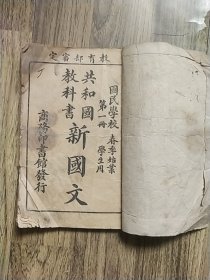 教育部審定
國民學校 春季始業
第一冊 學生用
共和國
教科書
新國文
商務印書館發行